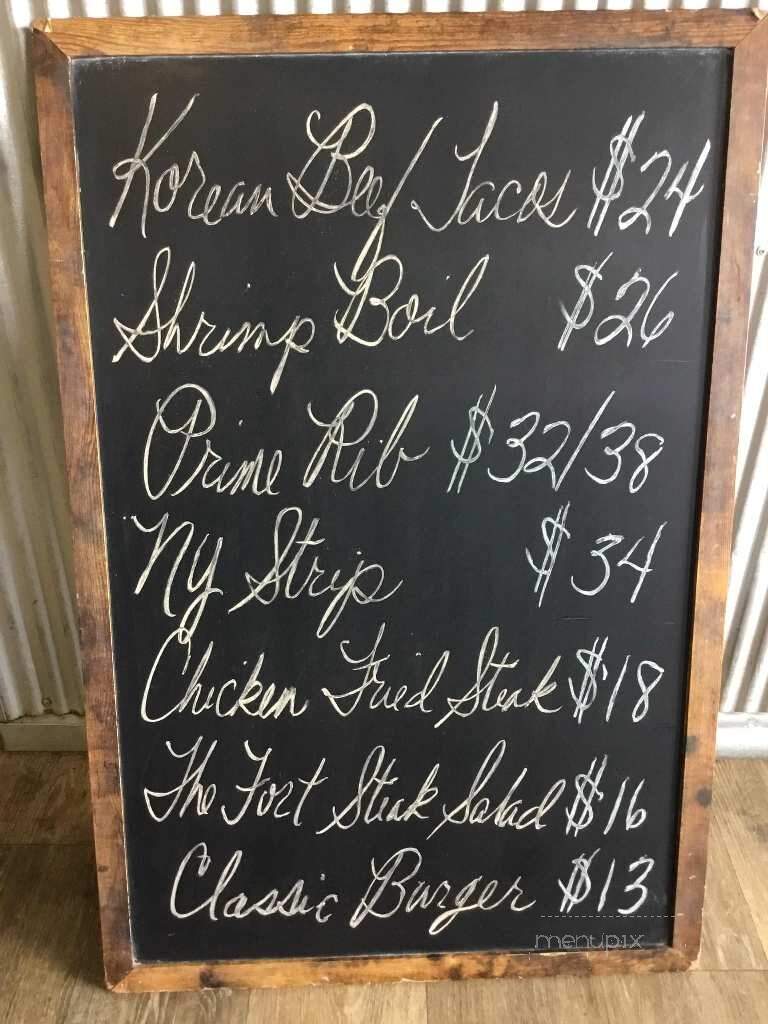 Korean Beef Tacos $24
Shrimp Boil $26
Prime Rib $32/38
NY Strip $34
Chicken Fried Steak $18
The Fort Steak Salad $16
Classic Burger $13
menupix